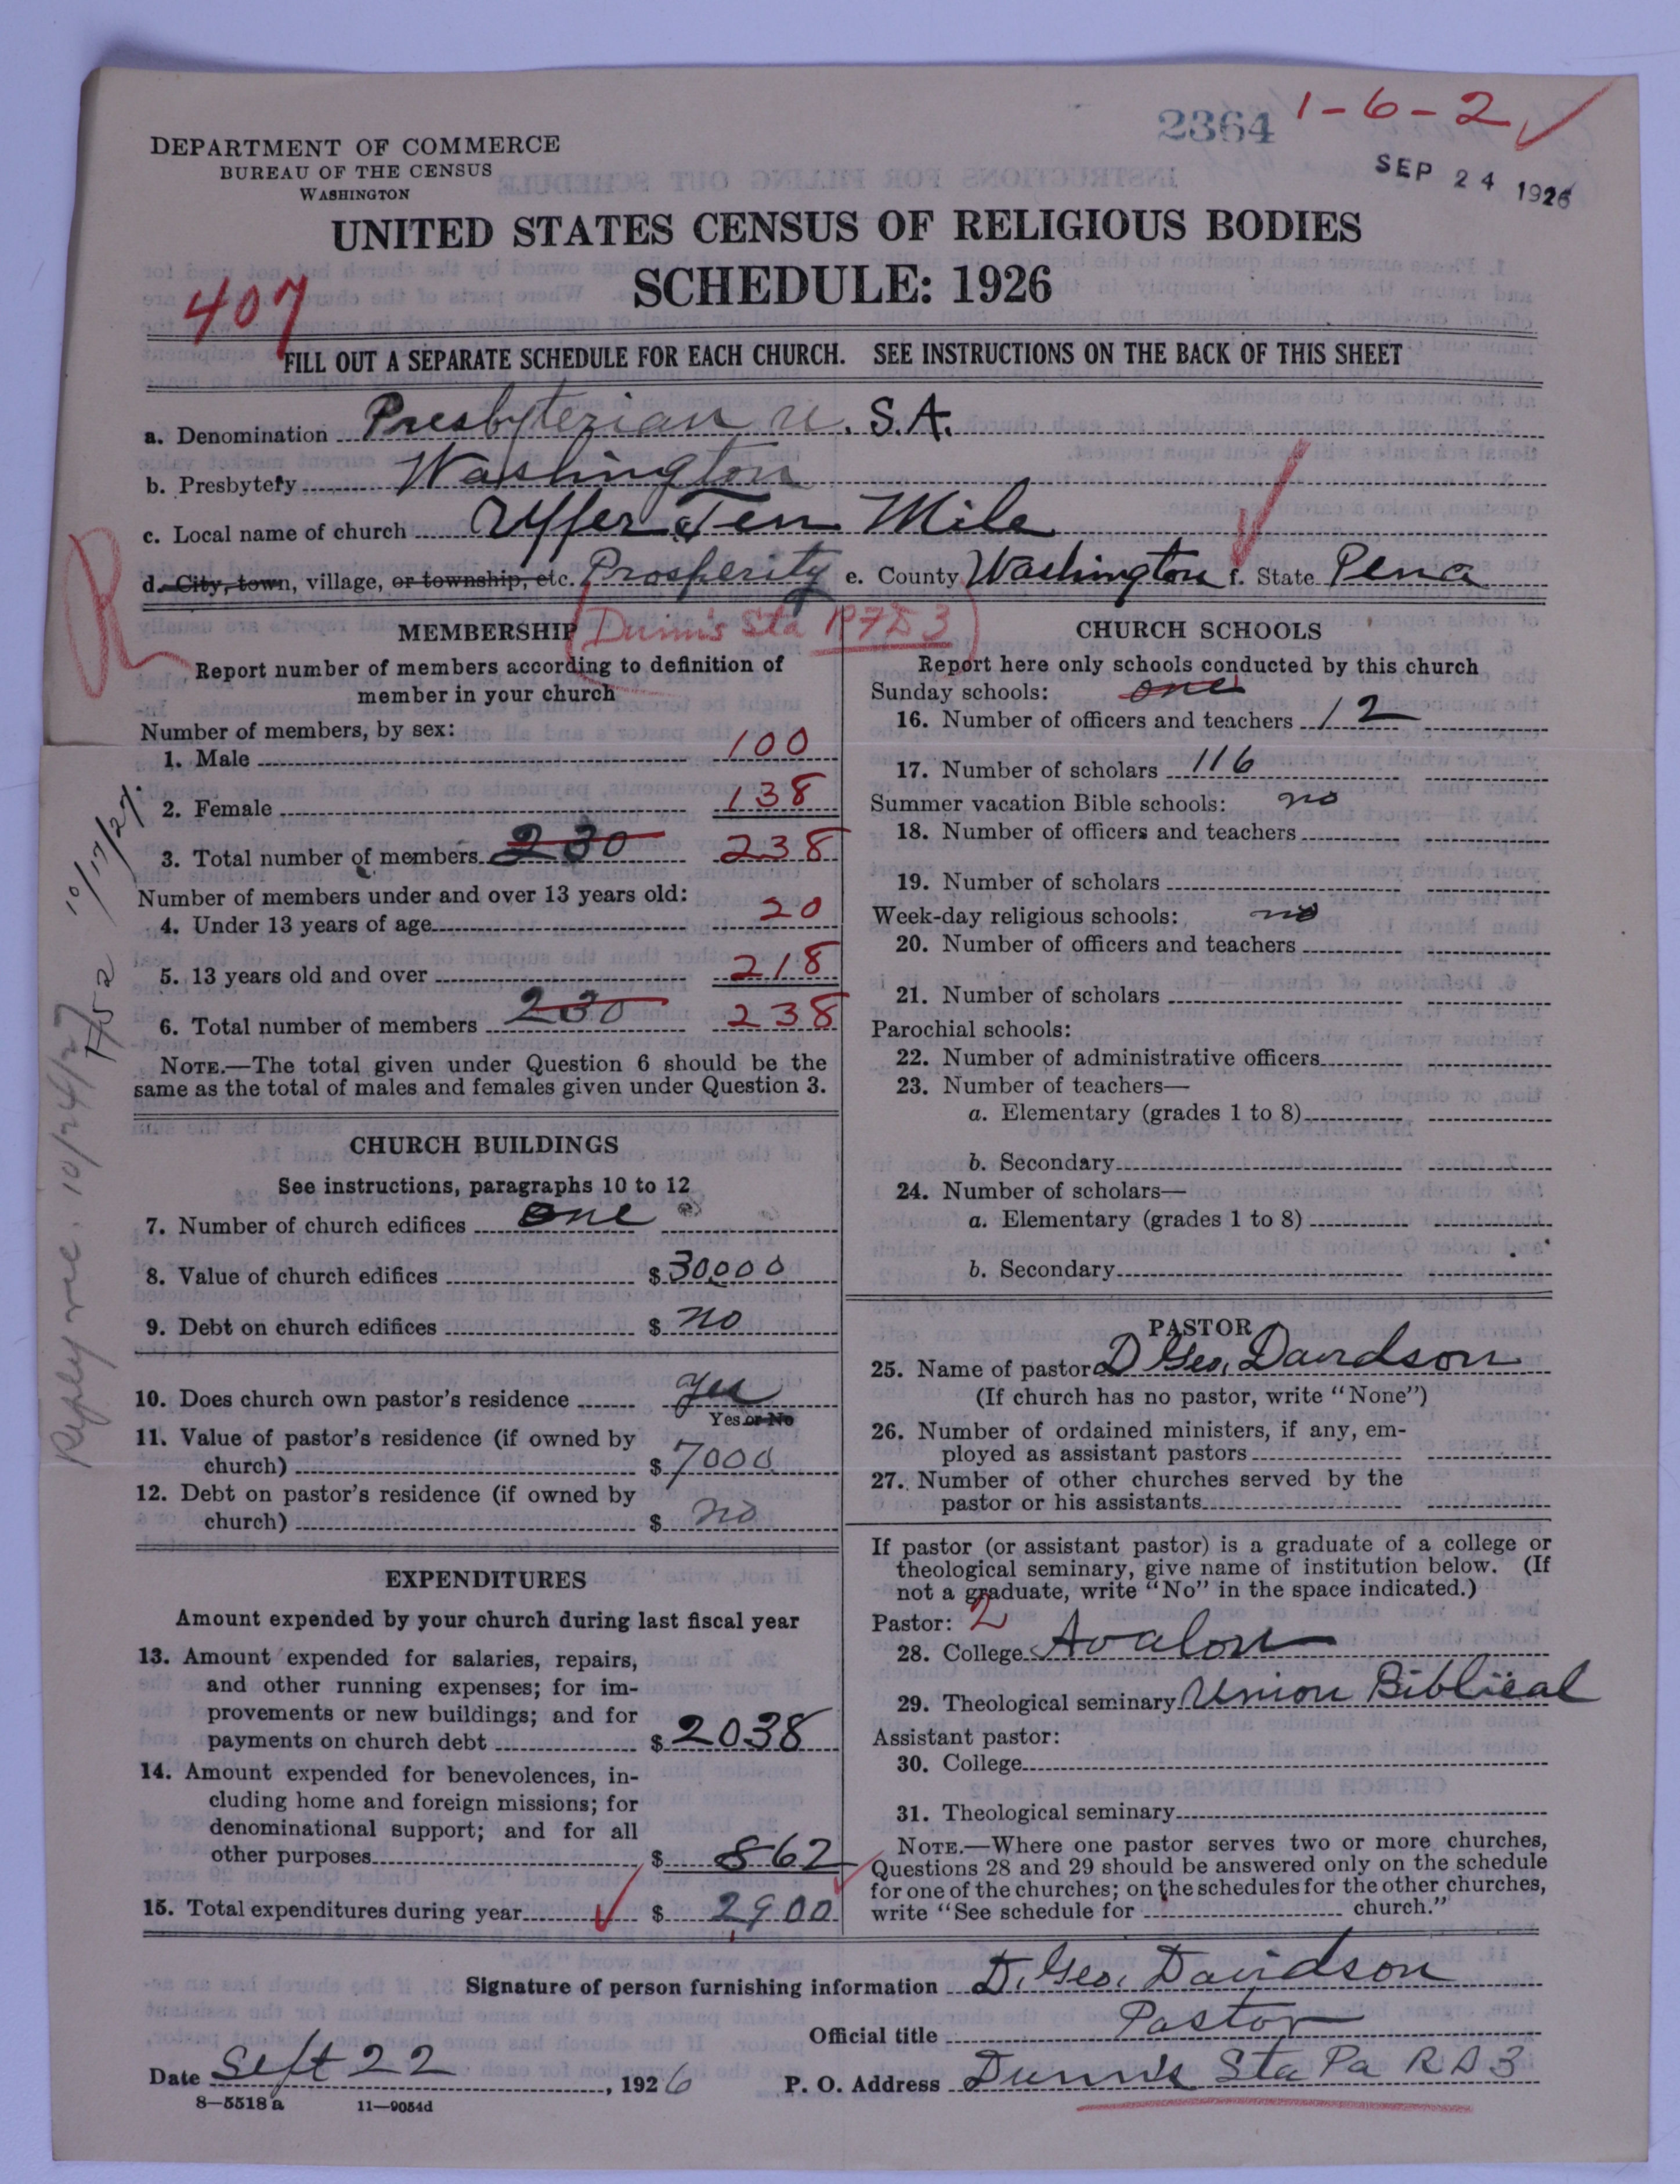 2364 1-6-2
SEP 24 1926
DEPARTMENT OF COMMERCE
BUREAU OF THE CENSUS
WASHINGTON
UNITED STATES CENSUS OF RELIGIOUS BODIES
SCHEDULE: 1926
407
FILL OUT A SEPARATE SCHEDULE FOR EACH CHURCH. SEE INSTRUCTIONS ON THE BACK OF THIS SHEET
a. Denomination Presbyterian U. S.A.
b. Presbytery Washington
c. Local name of church Upper Ten Mile
d. City, town, village, or township, etc. Prosperity e. County Washington f. State Pena
(Dunn's Sta RFD 3)
R
MEMBERSHIP
Report number of members according to definition of
member in your church
Number of members, by sex:
1. Male 100
2. Female 138
3. Total number of members 230 238
Number of members under and over 13 years old:
4. Under 13 years of age 20
5. 13 years old and over 218
6. Total number of members 230 238
NOTE.—The total given under Question 6 should be the
same as the total of males and females given under Question 3.
10/17/27
1752
Reply rec. 10/24/27
CHURCH BUILDINGS
See instructions, paragraphs 10 to 12
7. Number of church edifices one
8. Value of church edifices $ 30000
9. Debt on church edifices $ no
10. Does church own pastor's residence yes
Yes or No
11. Value of pastor's residence (if owned by
church) $ 7000
12. Debt on pastor's residence (if owned by
church) $ no
EXPENDITURES
Amount expended by your church during last fiscal year
13. Amount expended for salaries, repairs,
and other running expenses; for im-
provements or new buildings; and for
payments on church debt $ 2038
14. Amount expended for benevolences, in-
cluding home and foreign missions; for
denominational support; and for all
other purposes $ 862
15. Total expenditures during year $ 2900
CHURCH SCHOOLS
Report here only schools conducted by this church
Sunday schools: one
16. Number of officers and teachers 12
17. Number of scholars 116
Summer vacation Bible schools: no
18. Number of officers and teachers
19. Number of scholars
Week-day religious schools: no
20. Number of officers and teachers
21. Number of scholars
Parochial schools:
22. Number of administrative officers
23. Number of teachers—
a. Elementary (grades 1 to 8)
b. Secondary
24. Number of scholars—
a. Elementary (grades 1 to 8)
b. Secondary
PASTOR
25. Name of pastor D Geo. Davidson
(If church has no pastor, write "None")
26. Number of ordained ministers, if any, em-
ployed as assistant pastors
27. Number of other churches served by the
pastor or his assistants
If pastor (or assistant pastor) is a graduate of a college or
theological seminary, give name of institution below. (If
not a graduate, write "No" in the space indicated.)
Pastor: 2
28. College Avalon
29. Theological seminary Union Biblical
Assistant pastor:
30. College
31. Theological seminary
NOTE.—Where one pastor serves two or more churches,
Questions 28 and 29 should be answered only on the schedule
for one of the churches; on the schedules for the other churches,
write "See schedule for church."
Signature of person furnishing information D. Geo. Davidson
Official title Pastor
Date Sept 22, 1926 P. O. Address Dunn's Sta Pa R D 3
8—5518 a 11—9054d